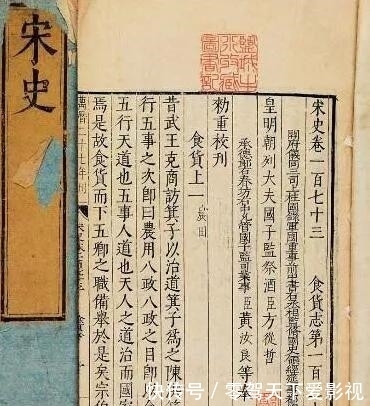 宋史
宋史卷一百七十三 食貨志第一百
開府儀同三司上柱國錄軍國重事前中書右丞相監修國史領經筵事都
皇明朝列大夫國子監祭酒臣方從哲
承德郎右春坊右中允管國子監司業事臣黃汝良等奉
勑重校刊
食貨上一 農田
昔武王克商訪箕子以治道箕子爲之陳
行五事之次即曰農用八政八政之目即
五行天道也五事人道也天人之道治而國
焉是故食貨而下五卿之職備舉於是矣宗
萬曆二十七年刊
快传号/零驾天下爱影视